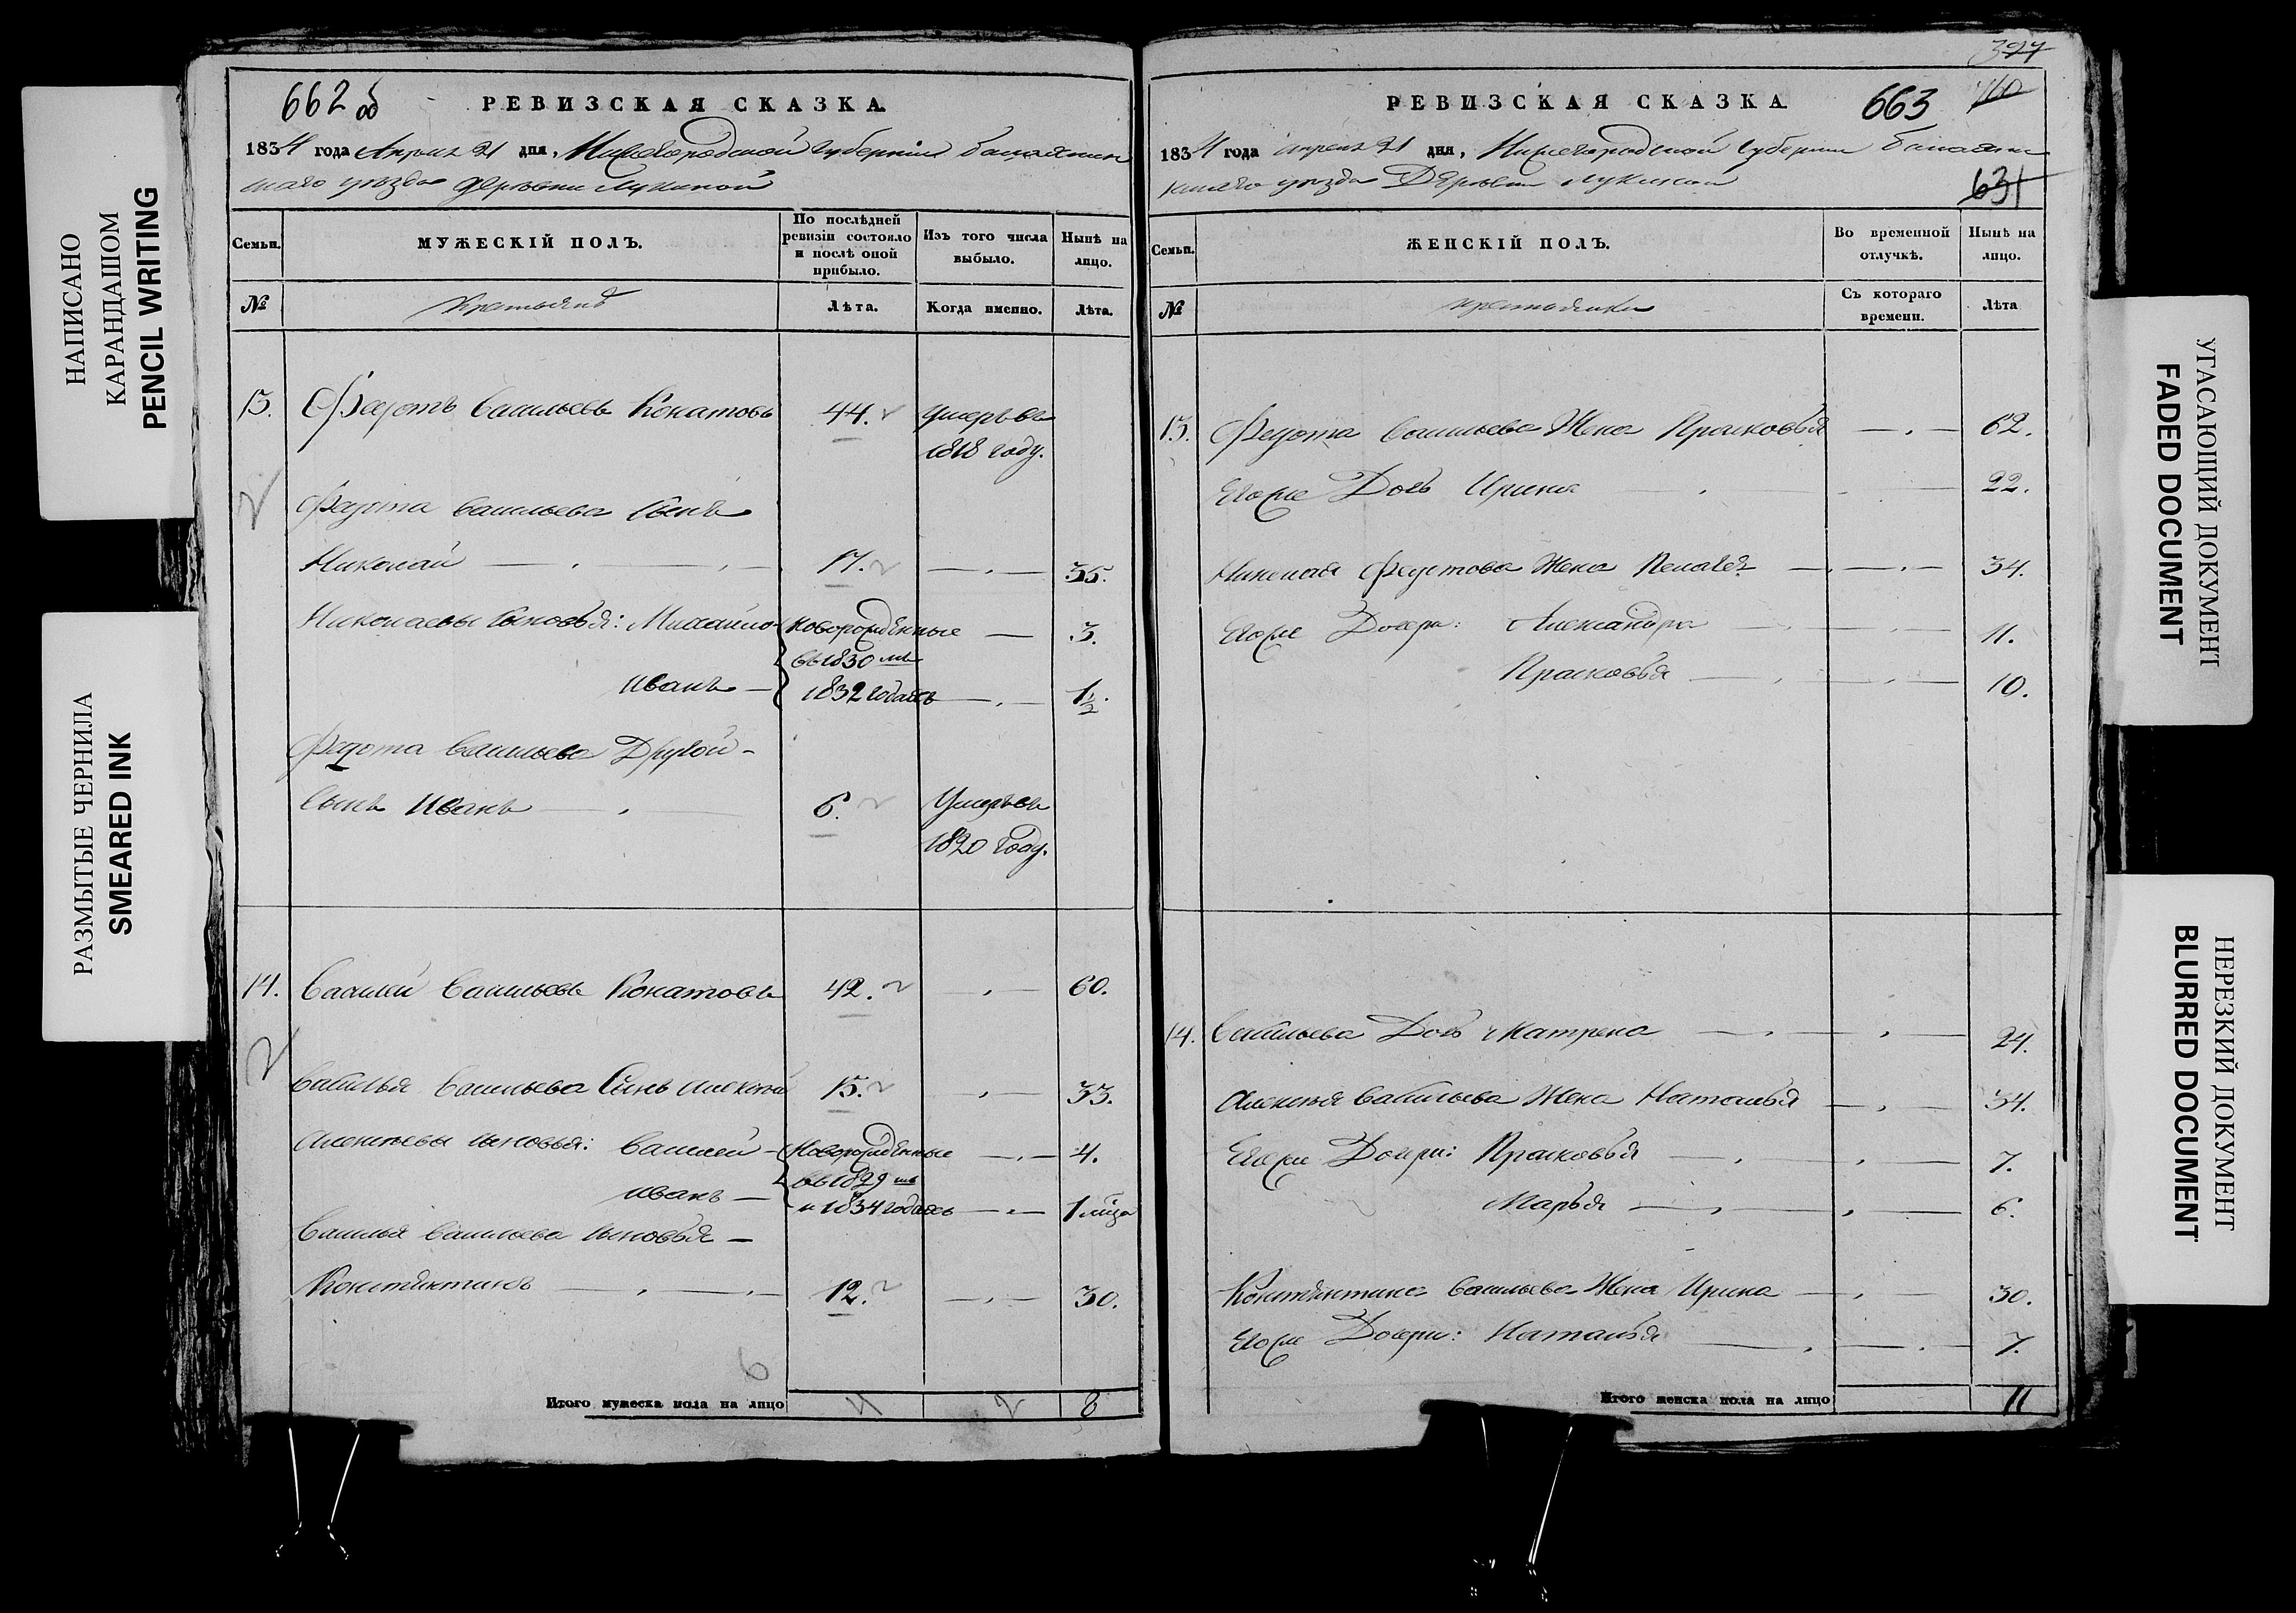 НАПИСАНО
КАРАНДАШОМ
PENCIL WRITING
РАЗМЫТЫЕ ЧЕРНИЛА
SMEARED INK
662 об
РЕВИЗСКАЯ СКАЗКА.
1834 года Апреля 21 дня, Нижегородской губернiи Балахнин
скаго уѣзда деревни Лукиной
Семьи.
МУЖЕСКIЙ ПОЛЪ.
По послѣдней
ревизiи состояло
и послѣ оной
прибыло.
Изъ того числа
выбыло.
Нынѣ на
лицо.
№
Крестьянъ
Лѣта.
Когда именно.
Лѣта.
13. Федотъ Васильевъ Конатовъ 44. умеръ въ
1818 году.
Федота Васильева Сынъ
Николай 17. 35.
Николаевы сыновья: Михайло новорожденные 3.
въ 1830 мъ
Иванъ 1832 годахъ 1½.
Федота Васильева Другой
Сынъ Иванъ 6. Умеръ въ
1820 году.
14. Василей Васильевъ Конатовъ 42. 60.
Василья Васильева Сынъ Алексей 15. 33.
Алексеевы сыновья: Василей Новорожденные 4.
въ 1829 мъ
Иванъ и 1834 годахъ 1 мѣца
Василья Васильева сыновья
Констянтинъ 12. 30.
6
Итого мужеска пола на лицо 4 2 8
397
РЕВИЗСКАЯ СКАЗКА.
663
110
1834 года апреля 21 дня, Нижегородской губернiи Балахнин
скаго уѣзда Деревни Лукиной
631
Семьи.
ЖЕНСКIЙ ПОЛЪ.
Во временной
отлучкѣ.
Нынѣ на
лицо.
№
крестьянки
Съ котораго
времени.
Лѣта
13. Федота Васильева Жена Прасковья 62.
Егоже Дочь Ирина 22.
Николая Федотова Жена Пелагея 34.
Егоже Дочери: Александра 11.
Прасковья 10.
14. Васильева Дочь Матрена 24.
Алексея Васильева Жена Наталья 34.
Егоже Дочери: Прасковья 7.
Марья 6.
Констянтина Васильева Жена Ирина 30.
Егоже Дочери: Наталья 7.
Итого женска пола на лицо 11
УГАСАЮЩИЙ ДОКУМЕНТ
FADED DOCUMENT
НЕРЕЗКИЙ ДОКУМЕНТ
BLURRED DOCUMENT